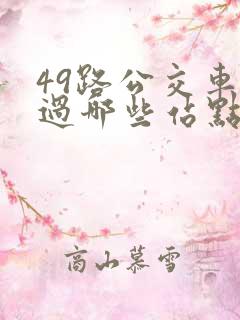 49路公交車
過哪些佔點
高山慕雪